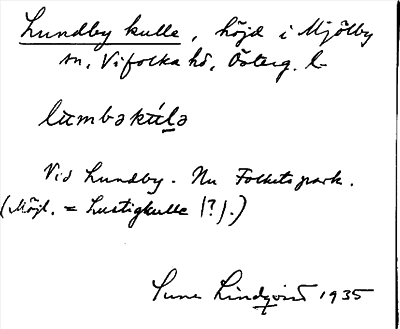 Lundby kulle, höjd i Mjölby
sn, Vifolka hd, Österg. l.
lùmbəkúlə
Vid Lundby. Nu Folkets park.
(Möjl. = Lustigkulle (?).)
Sune Lindqvist 1935